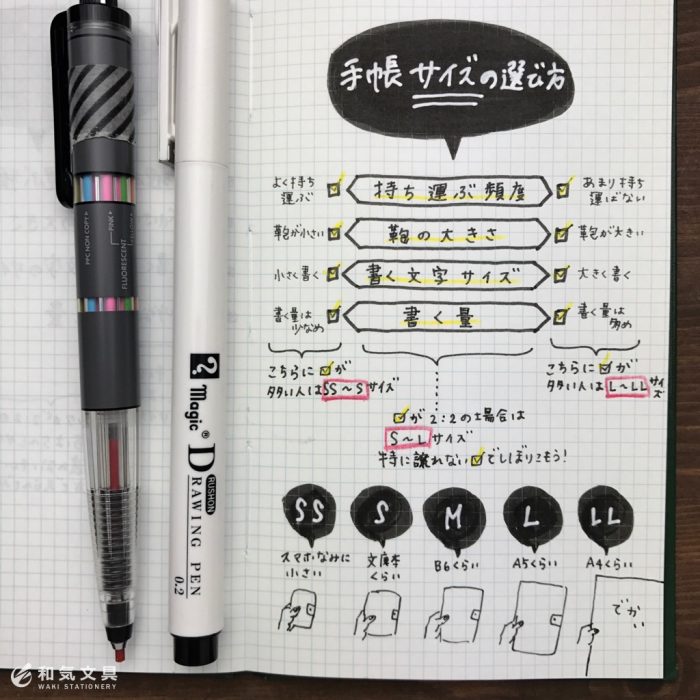 手帳サイズの選び方
よく持ち
運ぶ
持ち運ぶ頻度
あまり持ち
運ばない
鞄が小さい
鞄の大きさ
鞄が大きい
小さく書く
書く文字サイズ
大きく書く
書く量は
少なめ
書く量
書く量は
多め
こちらに☑が
多い人はSS〜Sサイズ
こちらに☑が
多い人はL〜LLサイズ
☑が2:2の場合は
S〜Lサイズ
特に譲れない☑でしぼりこもう!
SS
S
M
L
LL
スマホなみに
小さい
文庫本
くらい
B6くらい
A5くらい
A4くらい
でかい
PPC NON COPY
PINK
FLUORESCENT
Magic®
RUSHON
DRAWING PEN
0.2
和気文具
WAKI STATIONERY